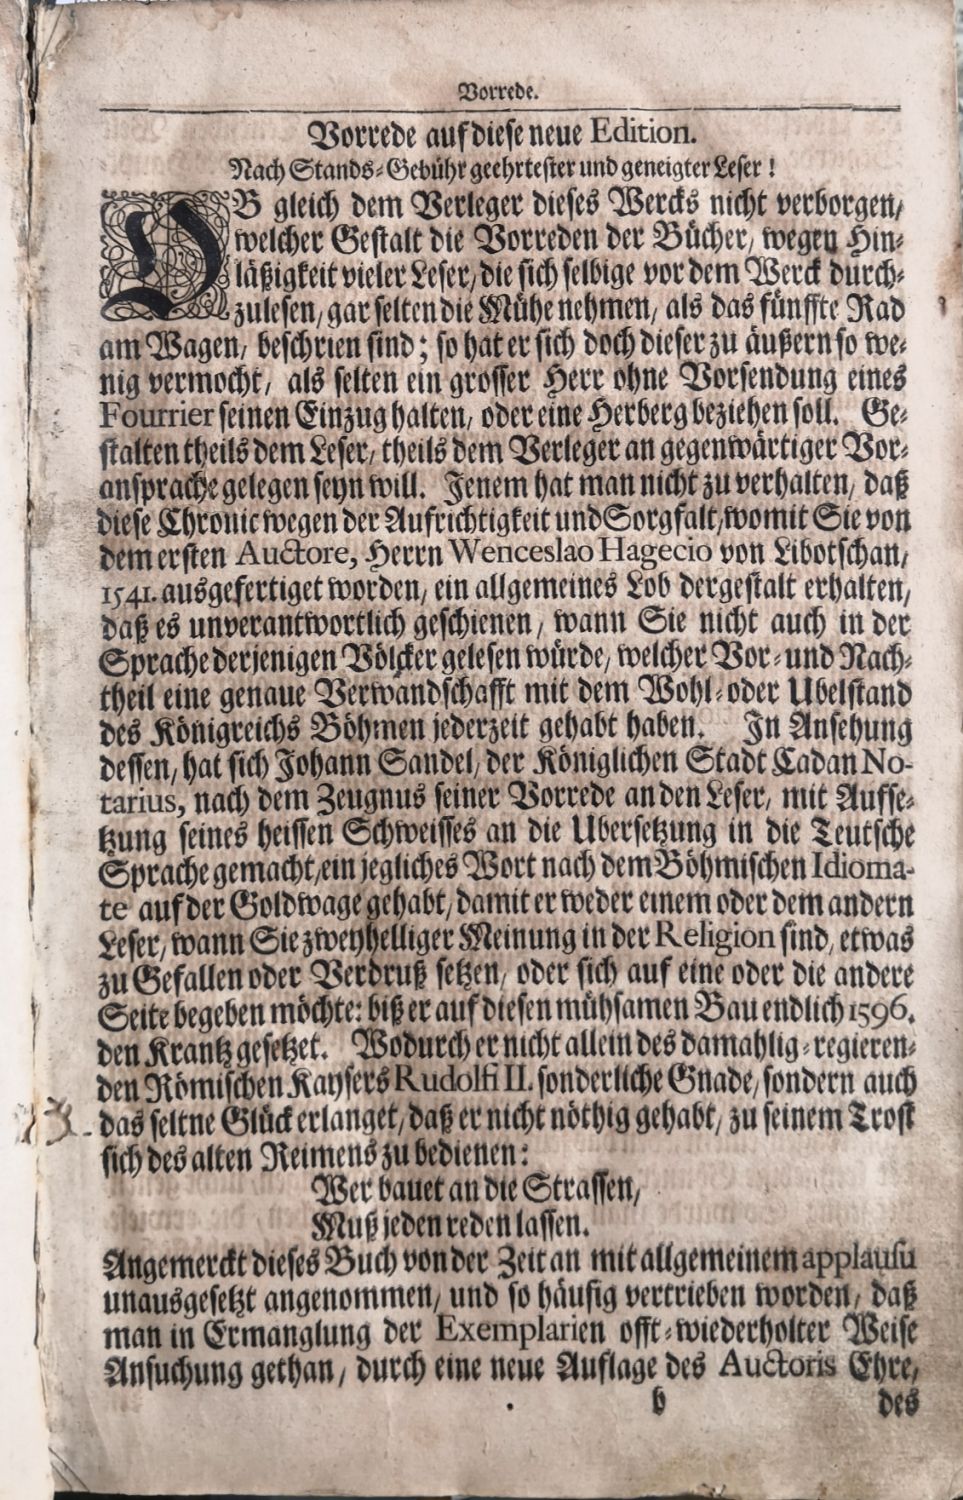 Vorrede.
Vorrede auf diese neue Edition.
Nach Stands-Gebühr geehrtester und geneigter Leser!
OB gleich dem Verleger dieses Wercks nicht verborgen/
welcher Gestalt die Vorreden der Bücher/ wegen Hin-
läßigkeit vieler Leser/ die sich selbige vor dem Werck durch-
zulesen/ gar selten die Mühe nehmen/ als das fünffte Rad
am Wagen/ beschrien sind; so hat er sich doch dieser zu äußern so we-
nig vermocht/ als selten ein grosser Herr ohne Vorsendung eines
Fourrier seinen Einzug halten/ oder eine Herberg beziehen soll. Ge-
stalten theils dem Leser/ theils dem Verleger an gegenwärtiger Vor-
ansprache gelegen seyn will. Jenem hat man nicht zu verhalten/ daß
diese Chronic wegen der Aufrichtigkeit und Sorgfalt/ womit Sie von
dem ersten Auctore, Herrn Wenceslao Hagecio von Libotschan/
1541. ausgefertiget worden/ ein allgemeines Lob dergestalt erhalten/
daß es unverantwortlich geschienen/ wann Sie nicht auch in der
Sprache derjenigen Völcker gelesen würde/ welcher Vor- und Nach-
theil eine genaue Verwandschafft mit dem Wohl- oder Ubelstand
des Königreichs Böhmen jederzeit gehabt haben. In Ansehung
dessen/ hat sich Johann Sandel/ der Königlichen Stadt Cadan No-
tarius, nach dem Zeugnus seiner Vorrede an den Leser/ mit Aufse-
tzung seines heissen Schweisses an die Ubersetzung in die Teutsche
Sprache gemacht/ ein jegliches Wort nach dem Böhmischen Idioma-
te auf der Goldwage gehabt/ damit er weder einem oder dem andern
Leser/ wann Sie zweyhelliger Meinung in der Religion sind/ etwas
zu Gefallen oder Verdruß setzen/ oder sich auf eine oder die andere
Seite begeben möchte: biß er auf diesen mühsamen Bau endlich 1596.
den Krantz gesetzet. Wodurch er nicht allein des damahlig-regieren-
den Römischen Kaysers Rudolfi II. sonderliche Gnade/ sondern auch
das seltne Glück erlanget/ daß er nicht nöthig gehabt/ zu seinem Trost
sich des alten Reimens zu bedienen:
Wer bauet an die Strassen/
Muß jeden reden lassen.
Angemerckt dieses Buch von der Zeit an mit allgemeinem applausu
unausgesetzt angenommen/ und so häufig vertrieben worden/ daß
man in Ermanglung der Exemplarien offt-wiederholter Weise
Ansuchung gethan/ durch eine neue Auflage des Auctoris Ehre/
b des